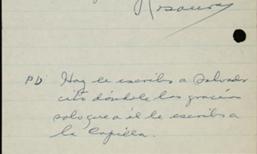 Rosaura
PD Hoy le escribo a Salvador
cito dándole las gracias
solo que a él le escribo a
la Capilla.